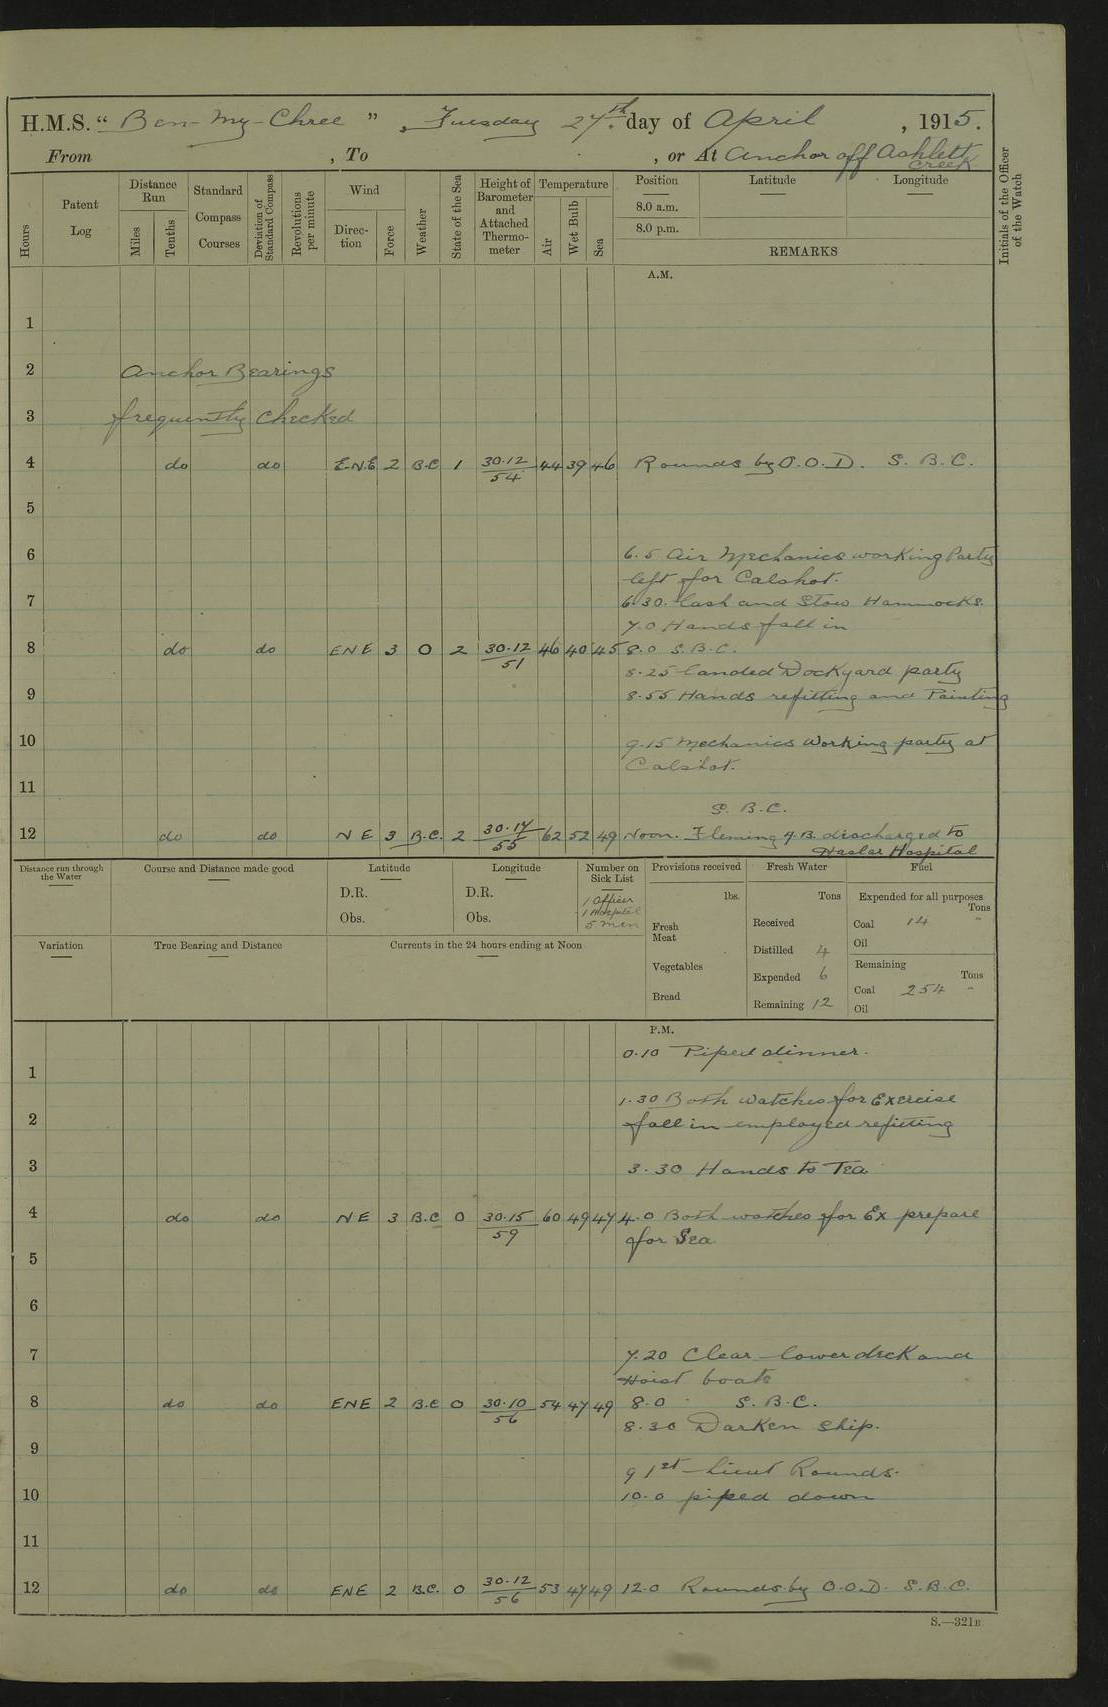 H.M.S. “ Ben-my-Chree ” , Tuesday 27th. day of April , 1915.
From , To , or At Anchor off Ashlett Creek
Hours
Patent Log
Distance Run
Miles
Tenths
Standard Compass Courses
Deviation of Standard Compass
Revolutions per minute
Wind
Direction
Force
Weather
State of the Sea
Height of Barometer and Attached Thermometer
Temperature
Air
Wet Bulb
Sea
Position
Latitude
Longitude
8.0 a.m.
8.0 p.m.
REMARKS
Initials of the Officer of the Watch
A.M.
1
2 Anchor Bearings
3 frequently checked
4 do do E.N.E 2 B.C 1 30.12/54 44 39 46 Rounds by O.O.D. S.B.C.
5
6 6.5 Air Mechanics working Party
left for Calshot.
7 6.30. Lash and Stow Hammocks.
7.0 Hands fall in
8 do do ENE 3 O 2 30.12/51 46 40 45 8.0 S.B.C.
8.25 landed Dockyard party
9 8.55 Hands refitting and Painting
10 9.15 Mechanics Working party at
Calshot.
11
S.B.C.
12 do do NE 3 B.C. 2 30.17/55 62 52 49 Noon. Fleming A.B. discharged to
Haslar Hospital
Distance run through the Water
Course and Distance made good
Latitude
D.R.
Obs.
Longitude
D.R.
Obs.
Number on Sick List
1 Officer
1 Hospital
5 men
Provisions received
lbs.
Fresh Meat
Vegetables
Bread
Fresh Water
Tons
Received
Distilled 4
Expended 6
Remaining 12
Fuel
Expended for all purposes
Tons
Coal 14 "
Oil
Remaining
Tons
Coal 254 "
Oil
Variation
True Bearing and Distance
Currents in the 24 hours ending at Noon
P.M.
0.10 Piped dinner.
1
1.30 Both watches for Exercise
2 fall in employed refitting
3 3.30 Hands to Tea
4 do do NE 3 B.C 0 30.15/59 60 49 47 4.0 Both watches for Ex prepare
for Sea
5
6
7 7.20 Clear lower deck and
Hoist boats
8 do do ENE 2 B.C 0 30.10/56 54 47 49 8.0 S.B.C.
8.30 Darken Ship.
9
9 1st Lieut Rounds.
10 10.0 piped down
11
12 do do ENE 2 B.C. 0 30.12/56 53 47 49 12.0 Rounds by O.O.D. S.B.C.
S.—321B